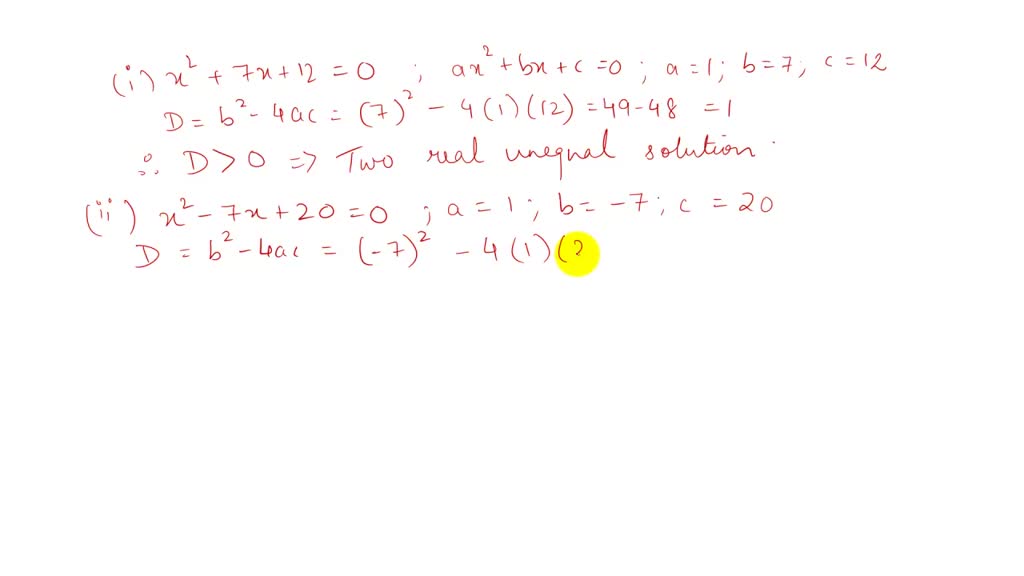 (i) x² + 7x + 12 = 0 ; ax² + bx + c = 0 ; a = 1 ; b = 7 ; c = 12
D = b² - 4ac = (7)² - 4(1)(12) = 49 - 48 = 1
∴ D > 0 => Two real unequal solution.
(ii) x² - 7x + 20 = 0 ; a = 1 ; b = -7 ; c = 20
D = b² - 4ac = (-7)² - 4(1)(2